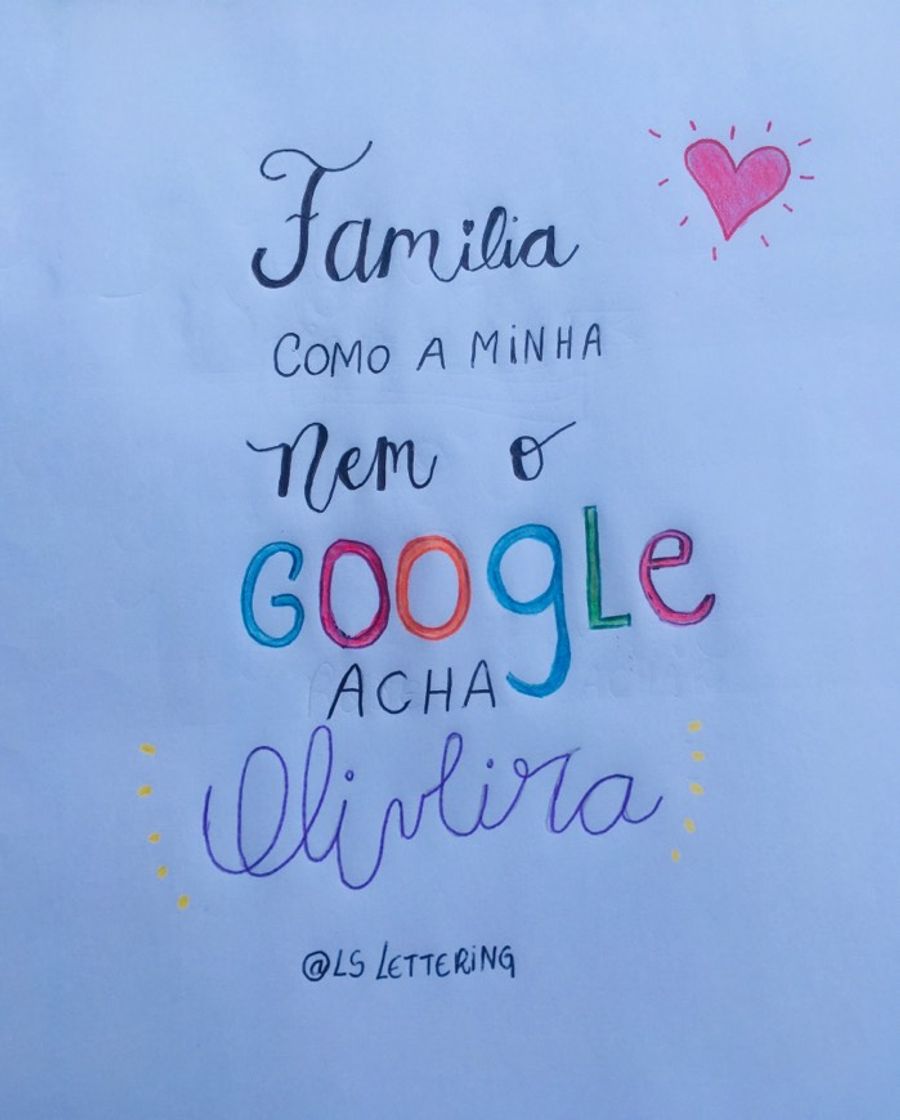 Familia
COMO A MINHA
nem o
GOOgLe
ACHA
Oliveira
@LS LETTERING